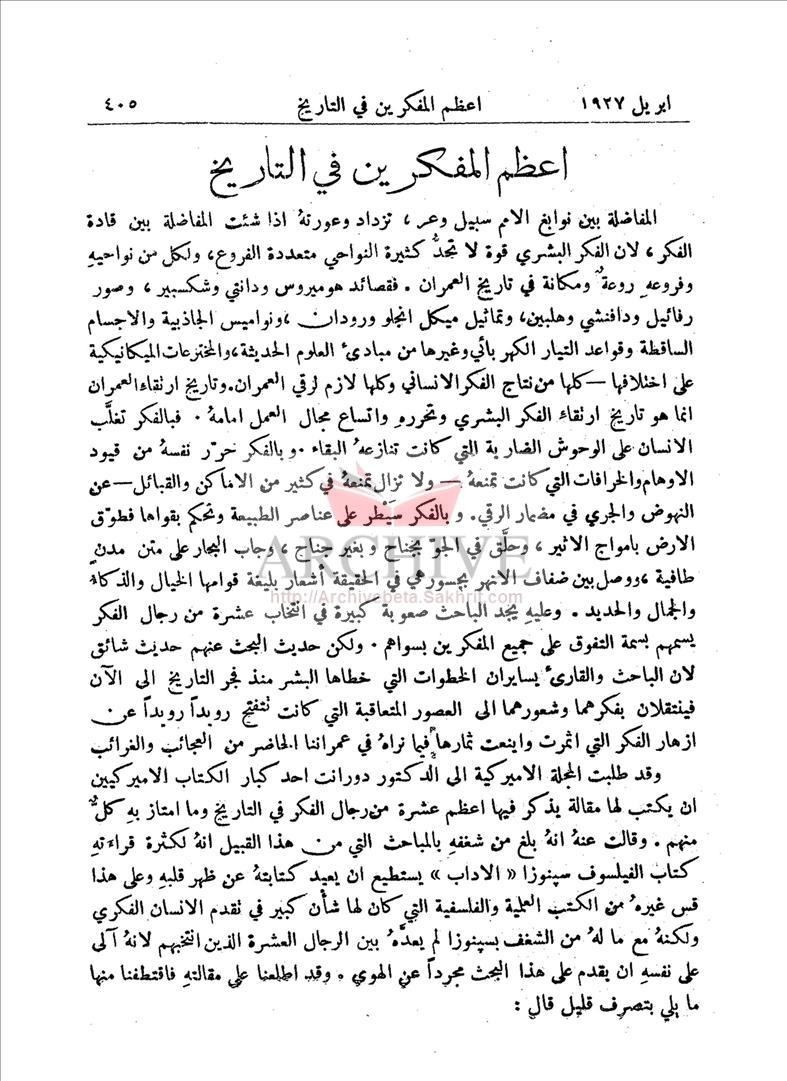 ابريل ١٩٢٧ اعظم المفكرين في التاريخ ٤٠٥
اعظم المفكرين في التاريخ
المفاضلة بين نوابغ الامم سبيل وعر ، تزداد وعورتهُ اذا شئت المفاضلة بين قادة
الفكر ، لان الفكر البشري قوة لا تحدُّ كثيرة النواحي متعددة الفروع، ولكل من نواحيهِ
وفروعهِ روعة ومكانة في تاريخ العمران . فقصائد هوميروس ودانتي وشكسبير ، وصور
رفائيل ودافنشي وهلبين، وتماثيل ميكل انجلو ورودان ،ونواميس الجاذبية والاجسام
الساقطة وقواعد التيار الكهربائي وغيرها من مبادىء العلوم الحديثة،والمخترعات الميكانيكية
على اختلافها — كلها من نتاج الفكر الانساني وكلها لازم لرقي العمران.وتاريخ ارتقاء العمران
انما هو تاريخ ارتقاء الفكر البشري وتحرره واتساع مجال العمل امامهُ . فبالفكر تغلَّب
الانسان على الوحوش الضارية التي كانت تنازعهُ البقاء .و بالفكر حرَّر نفسهُ من قيود
الاوهام والخرافات التي كانت تمنعهُ — ولا تزال تمنعهُ في كثير من الاماكن والقبائل — عن
النهوض والجري في مضمار الرقي. و بالفكر سيْطر على عناصر الطبيعة وتحكم بقواها فطوَّق
الارض بامواج الاثير ، وحلَّق في الجوّ بجناح و بغير جناح ، وجاب البحار على متن مدن
طافية ، ووصل بين ضفاف الانهر بجسور هي في الحقيقة أشعار بليغة قوامها الخيال والذكاء
والجمال والحديد . وعليهِ يجد الباحث صعوبة كبيرة في انتخاب عشرة من رجال الفكر
يسمهم بسمة التفوق على جميع المفكرين بسواهم . ولكن حديث البحث عنهم حديث شائق
لان الباحث والقارىء يسايران الخطوات التي خطاها البشر منذ فجر التاريخ الى الآن
فينتقلان بفكرهما وشعورهما الى العصور المتعاقبة التي كانت تتفتح رويداً رويداً عن
ازهار الفكر التي اثمرت واينعت ثمارها فيما نراهُ في عمراننا الحاضر من العجائب والغرائب
وقد طلبت المجلة الاميركية الى الدكتور دورانت احد كبار الكتاب الاميركيين
ان يكتب لها مقالة يذكر فيها اعظم عشرة من رجال الفكر في التاريخ وما امتاز بهِ كلٌّ
منهم . وقالت عنهُ انهُ بلغ من شغفهِ بالمباحث التي من هذا القبيل انهُ لكثرة قراءتهِ
كتاب الفيلسوف سپنوزا « الاداب » يستطيع ان يعيد كتابتهُ عن ظهر قلبهِ وعلى هذا
قس غيرهُ من الكتب العلمية والفلسفية التي كان لها شأن كبير في تقدم الانسان الفكري
ولكنهُ مع ما لهُ من الشغف بسپنوزا لم يعدَّهُ بين الرجال العشرة الذين انتخبهم لانهُ آلى
على نفسهِ ان يقدم على هذا البحث مجرداً عن الهوي . وقد اطلعنا على مقالتهِ فاقتطفنا منها
ما يلي بتصرف قليل قال :
ARCHIVE
http://Archivebeta.Sakhrit.com